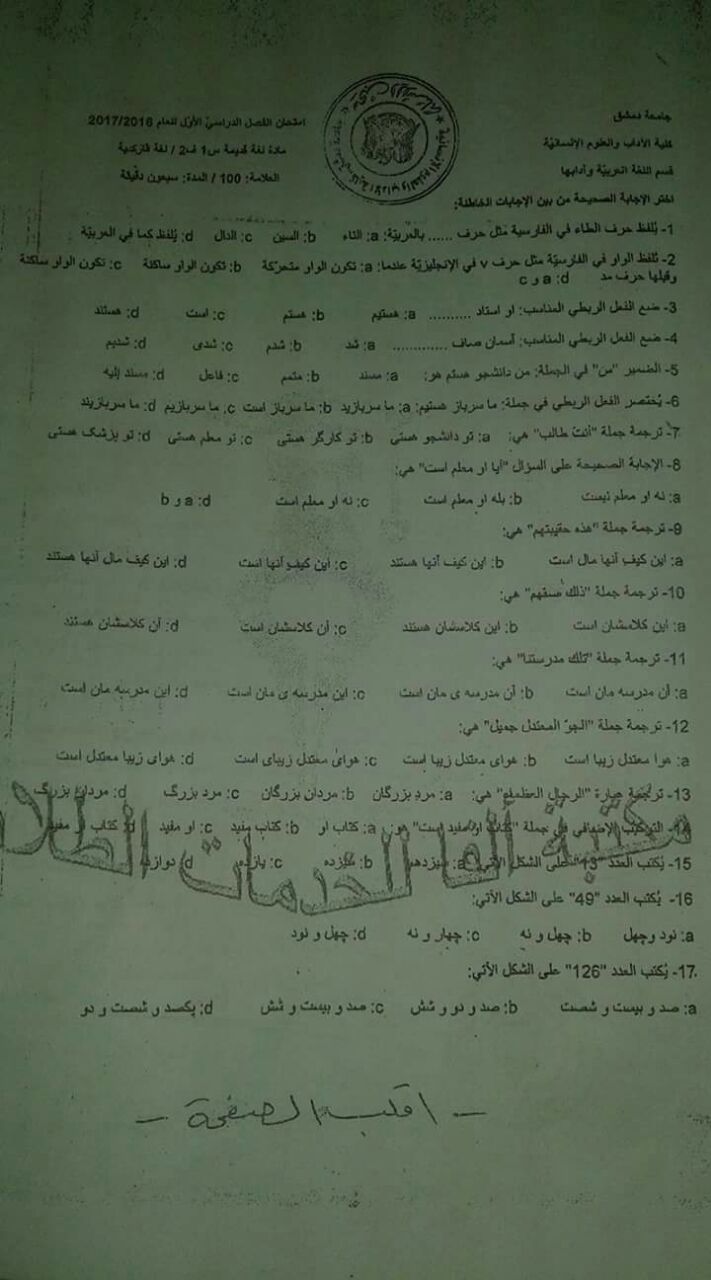 جامعة دمشق
كلية الآداب والعلوم الإنسانية
قسم اللغة العربية وآدابها
امتحان الفصل الدراسي الأول للعام 2017/2016
مادة لغة قديمة س1 ف2 / لغة فارسية
العلامة: 100 / المدة: سبعون دقيقة
اختر الإجابة الصحيحة من بين الإجابات الخاطئة:
1- يُلفظ حرف الطاء في الفارسية مثل حرف ...... بالعربيّة: a: التاء b: السين c: الدال d: يُلفظ كما في العربيّة
2- تُلفظ الواو في الفارسيّة مثل حرف v في الإنجليزيّة عندما: a: تكون الواو متحركة b: تكون الواو ساكنة c: تكون الواو ساكنة
وقبلها حرف مد d: a و c
3- ضع الفعل الربطي المناسب: او استاد .......... a: هستیم b: هستم c: است d: هستند
4- ضع الفعل الربطي المناسب: آسمان صاف ............. a: شد b: شدم c: شدی d: شدیم
5- الضمير "من" في الجملة: من دانشجو هستم هو: a: مسند b: متمم c: فاعل d: مسند إليه
6- يُختصر الفعل الربطي في جملة: ما سرباز هستیم: a: ما سربازید b: ما سرباز است c: ما سربازیم d: ما سربازیند
7- ترجمة جملة "أنت طالب" هي: a: تو دانشجو هستی b: تو کارگر هستی c: تو معلم هستی d: تو پزشک هستی
8- الإجابة الصحيحة على السؤال "آیا او معلم است" هي:
a: نه او معلم نیست b: بله او معلم است c: نه او معلم است d: a و b
9- ترجمة جملة "هذه حقيبتهم" هي:
a: این کیف آنها مال است b: این کیف آنها هستند c: این کیف آنها است d: این کیف مال آنها هستند
10- ترجمة جملة "ذلك صفهم" هي:
a: این کلاسشان است b: این کلاسشان هستند c: آن کلاسشان است d: آن کلاسشان هستند
11- ترجمة جملة "تلك مدرستنا" هي:
a: آن مدرسه مان است b: آن مدرسه ی مان است c: این مدرسه ی مان است d: این مدرسه مان است
12- ترجمة جملة "الجوّ المعتدل جميل" هي:
a: هوا معتدل زیبا است b: هوای معتدل زیبا است c: هوای معتدل زیبای است d: هوای زیبا معتدل است
13- ترجمة عبارة "الرجال العظماء" هي: a: مرد بزرگان b: مردان بزرگان c: مرد بزرگ d: مردان بزرگ
14- التركيب الإضافي في جملة "کتاب او مفید است" هو: a: کتاب او b: کتاب مفید c: او مفید d: کتاب او مفید
15- يُكتب العدد "13" على الشكل الآتي: a: سیزدهم b: سیزده c: یازده d: دوازده
16- يُكتب العدد "49" على الشكل الآتي:
a: نود وچهل b: چهل و نه c: چهار و نه d: چهل و نود
17- يُكتب العدد "126" على الشكل الآتي:
a: صد و بیست و شصت b: صد و دو و شش c: صد و بیست و شش d: یکصد و شصت و دو
- اقلب الصفحة -